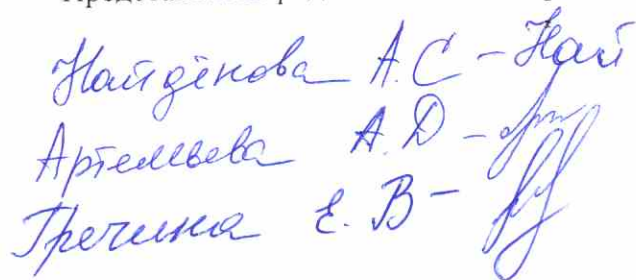 Найдёнова А.С – Най
Артемьева А.Д –
Гречина Е.В –